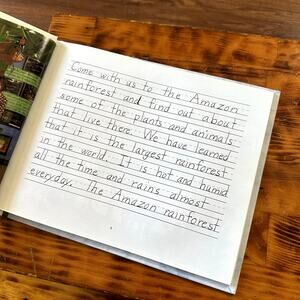 Come with us to the Amazon
rainforest and find out about
some of the plants and animals
that live there. We have learned
that it is the largest rainforest
in the world. It is hot and humid
all the time and rains almost
everyday. The Amazon rainforest